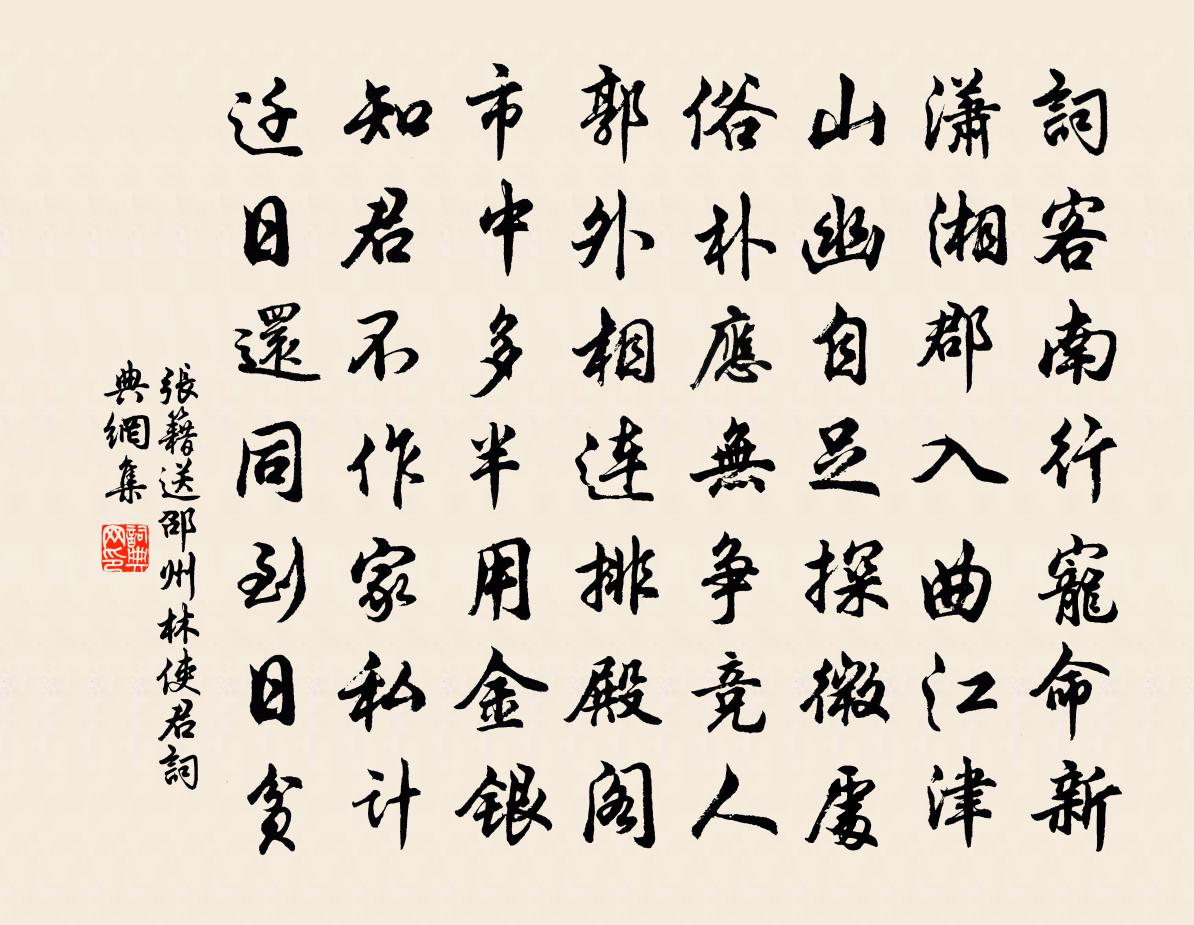 詞客南行寵命新
瀟湘郡入曲江津
山幽自足探微處
俗朴應無争竞人
郭外相連排殿阁
市中多半用金銀
知君不作家私计
迁日還同到日貧
張籍送邵州林使君詞
典網集
詞典网印